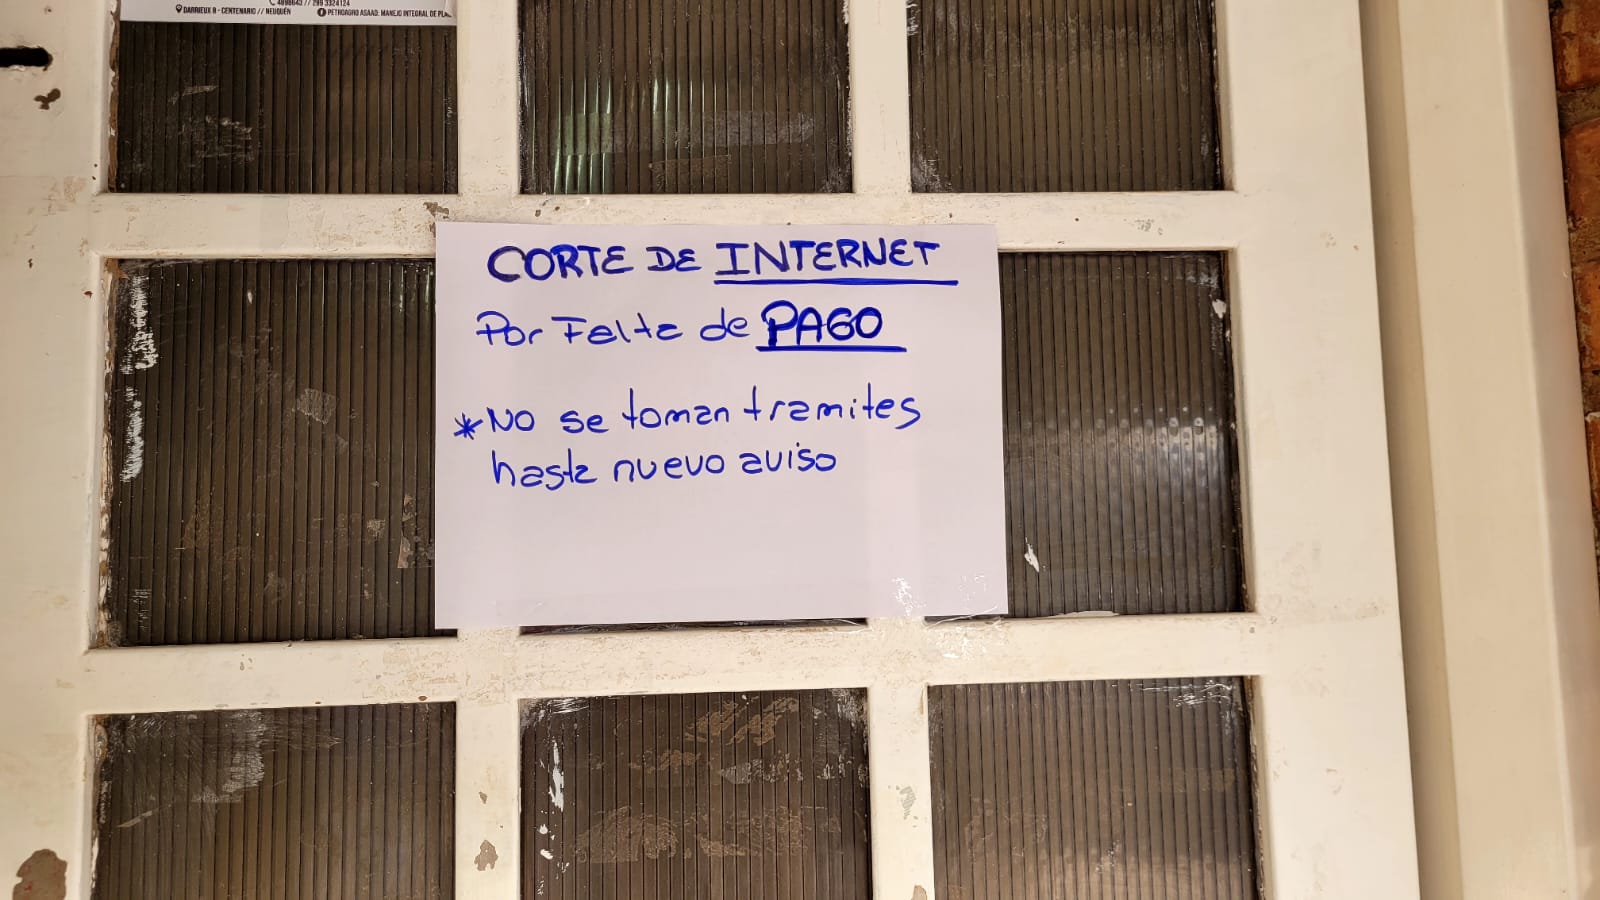 4898643 // 299 3324124
DARRIEUX 8 - CENTENARIO // NEUQUÉN
PETROAGRO ASAAD: MANEJO INTEGRAL DE
CORTE DE INTERNET
Por Falta de PAGO
*No se toman tramites
hasta nuevo aviso